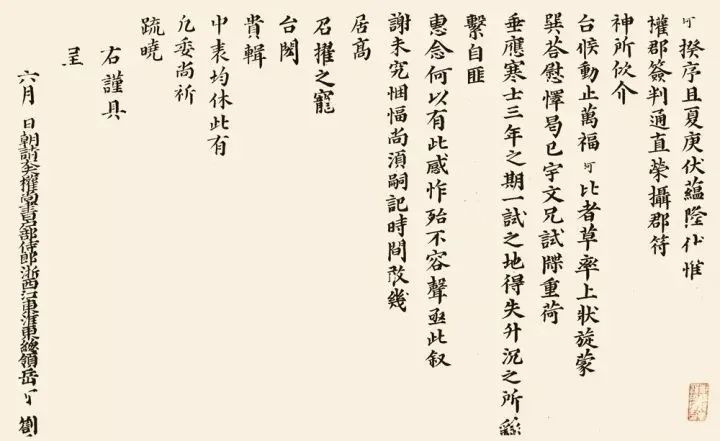 可揆序且夏庚伏蘊隆 惟
權郡簽判通直榮攝郡符
神所佽介
台候動止萬福可比者草率上狀旋蒙
巽荅慰懌曷已宇文兄試牒重荷
垂應寒士三年之期一試之地得失升沉之所繇
繫自匪
惠念何以有此感怍殆不容聲亟此叙
謝未究悃愊尚須嗣記時間
居髙
召擢之寵
台
貴輯
中表均休此有
凢委尚祈
疏曉
右謹具
呈
六月 日朝請大夫權尚書戶部侍郎浙西江東淮東總領岳 劄